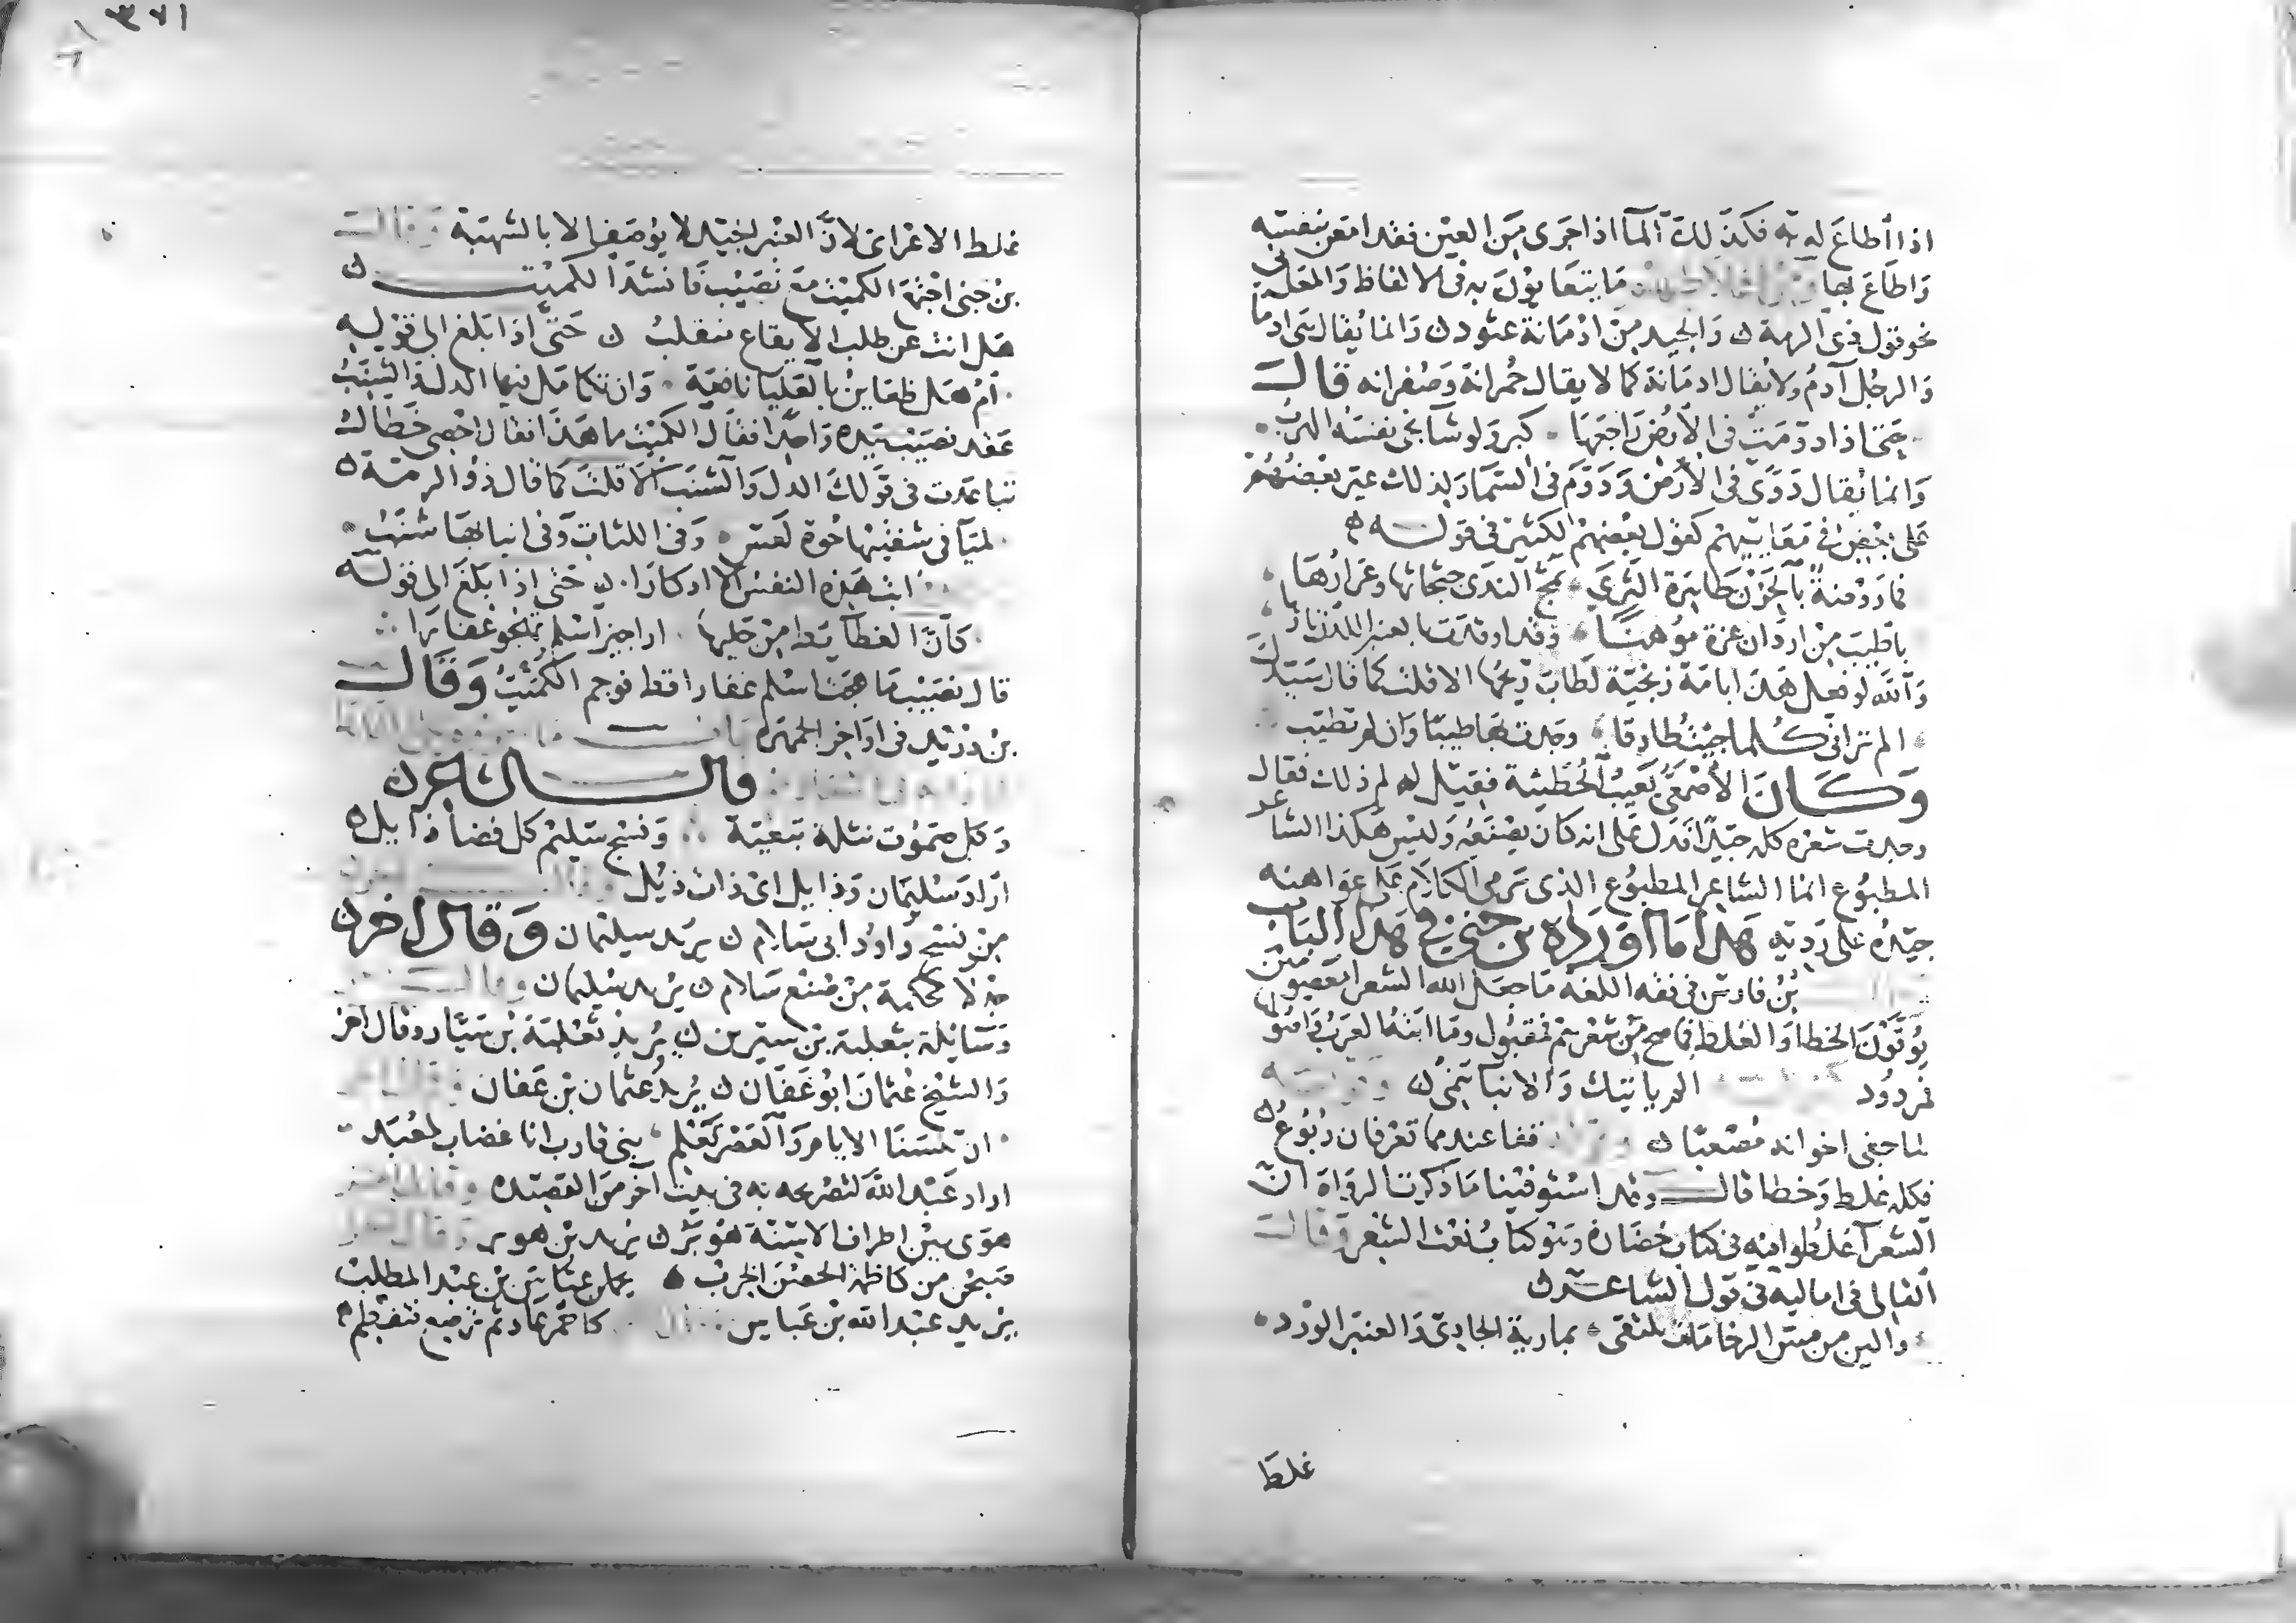 اذا أطاع له به فكذلك الما اذا جرى من العين فقد امعن بنفسه
وأطاع بها ما يتعايون به فى الالفاظ والمعانى
نحو قول ذى الرمة والجيد من ادمانة عتود وانما يقال هى ادما
والرجل آدم ولا يقال ادمانة كما لا يقال حمرانة وصفرانه قال
حتى اذا دومت فى الأرض راجعها كبر ولو شا نجى نفسه الهرب
وانما يقال دوى فى الأرض ودوم فى السما ولذلك عير بعضهم
على بعض فى معانيهم كقول بعضهم لكثير فى قوله
فما روضة بالحزن طاهرة الثرى يمج الندى جثجاثها وعرارها
باطيب من اردان عزة موهنا وقد اوقدت بالعنبر اللدن نارها
والله لو فعل هذا بامة زنجية لطاب ريحها الا قلت كما قال سيدك
الم ترانى كلما جيت طارقا وجدت بها طيبا وان لم تطيب
وكان الأصمعى يعيب الحطيئة فقيل له لم ذلك فقال
وجدت شعره كله جيدا فدل على انه كان يصنعه وليس هكذا الشاعر
المطبوع انما الشاعر المطبوع الذى يرمى الكلام على عواهنه
جيده على رديه هذا ما اورده بن جنى فى هذا الباب
بن فارس فى فقه اللغه ما جعل الله الشعرا معصومين
يوقون الخطا والغلط فما صح من شعرهم فمقبول وما ابته العربية واصولها
فمردود الم ياتيك والانبا تنمى
لما جفى اخوانه مصعبا قفا عند مما تعرفان ربوع
فكله غلط وخطا قال وقد استوفينا ما ذكرت الرواة ان
الشعرا غلطوا فيه فى كتاب خضارة وهو كتاب نعت الشعر وقال
القالى فى اماليه فى قول الشاعر
والين من مس الرخامات يلتقى بمارية الجادى والعنبر الورد
غلط
٣٧١
غلط الاعرابى لان العنبر الجيد لا يوصف الا بالشهبة وقال
بن جنى اجتمع الكميت مع نصيب فانشد الكميت
هل انت عن طلب الايفاع منقلب حتى اذا بلغ الى قوله
أم هل ظعاين بالعليا نافعة وان تكامل فيها الدل والشنب
عقد نصيب بيده واحدا فقال الكميت ما هذا فقال احصى خطاك
تباعدت فى قولك الدل والشنب الا قلت كما قال ذو الرمة
لميا فى شفتيها حوة لعس وفى اللثات وفى انيابها شنب
ابت هذه النفس الا ادكارا حتى اذا بلغ الى قوله
كأن الغطامط من غليها اراجيز اسلم تهجو غفارا
قال نصيب ما هجت اسلم غفارا قط فوجم الكميت وقال
بن دريد فى اواخر الجمهرة باب
قال الشاعر
وكل صموت نثلة تبعية ونسج سليم كل قضا ذايل
اراد سليمان وذايل اى ذات ذيل وقال آخر
من نسج داود ابى سلام يريد سليمان وقال آخر
جدلا محكمة من صنع سلام يريد سليمان وقال
وسايلة بثعلبة بن سير يريد ثعلبة بن سيار وقال آخر
والشيخ عثمان ابو عفان يريد عثمان بن عفان
ان تنسنا الايام والعصر تعلم بنى قارب انا غضاب لمعبد
اراد عبد الله لتصريحه به فى بيت آخر من القصيده وقال آخر
هوى بين اطراف الاسنة هوبر يريد بن هوبر
صبحن من كاظمة الحصن الخرب يحملن عباس بن عبد المطلب
يريد عبد الله بن عباس كاحمر عاد ثم ترضع فتفطم